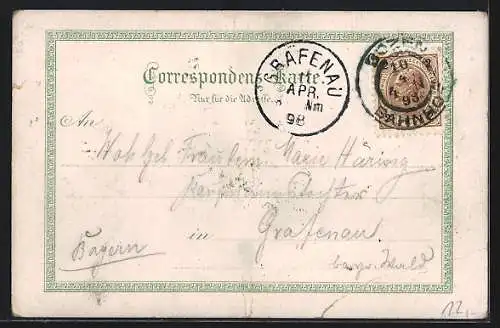 Correspondenz-Karte.
Nur für die Adresse.
GRAFENAU
APR.
Nm
98
BOZEN
BAHNHOF
An
Wohlgeb Fräulein Marie Häring
in
Grafenau
Bayern
bayr. Wald
12,-